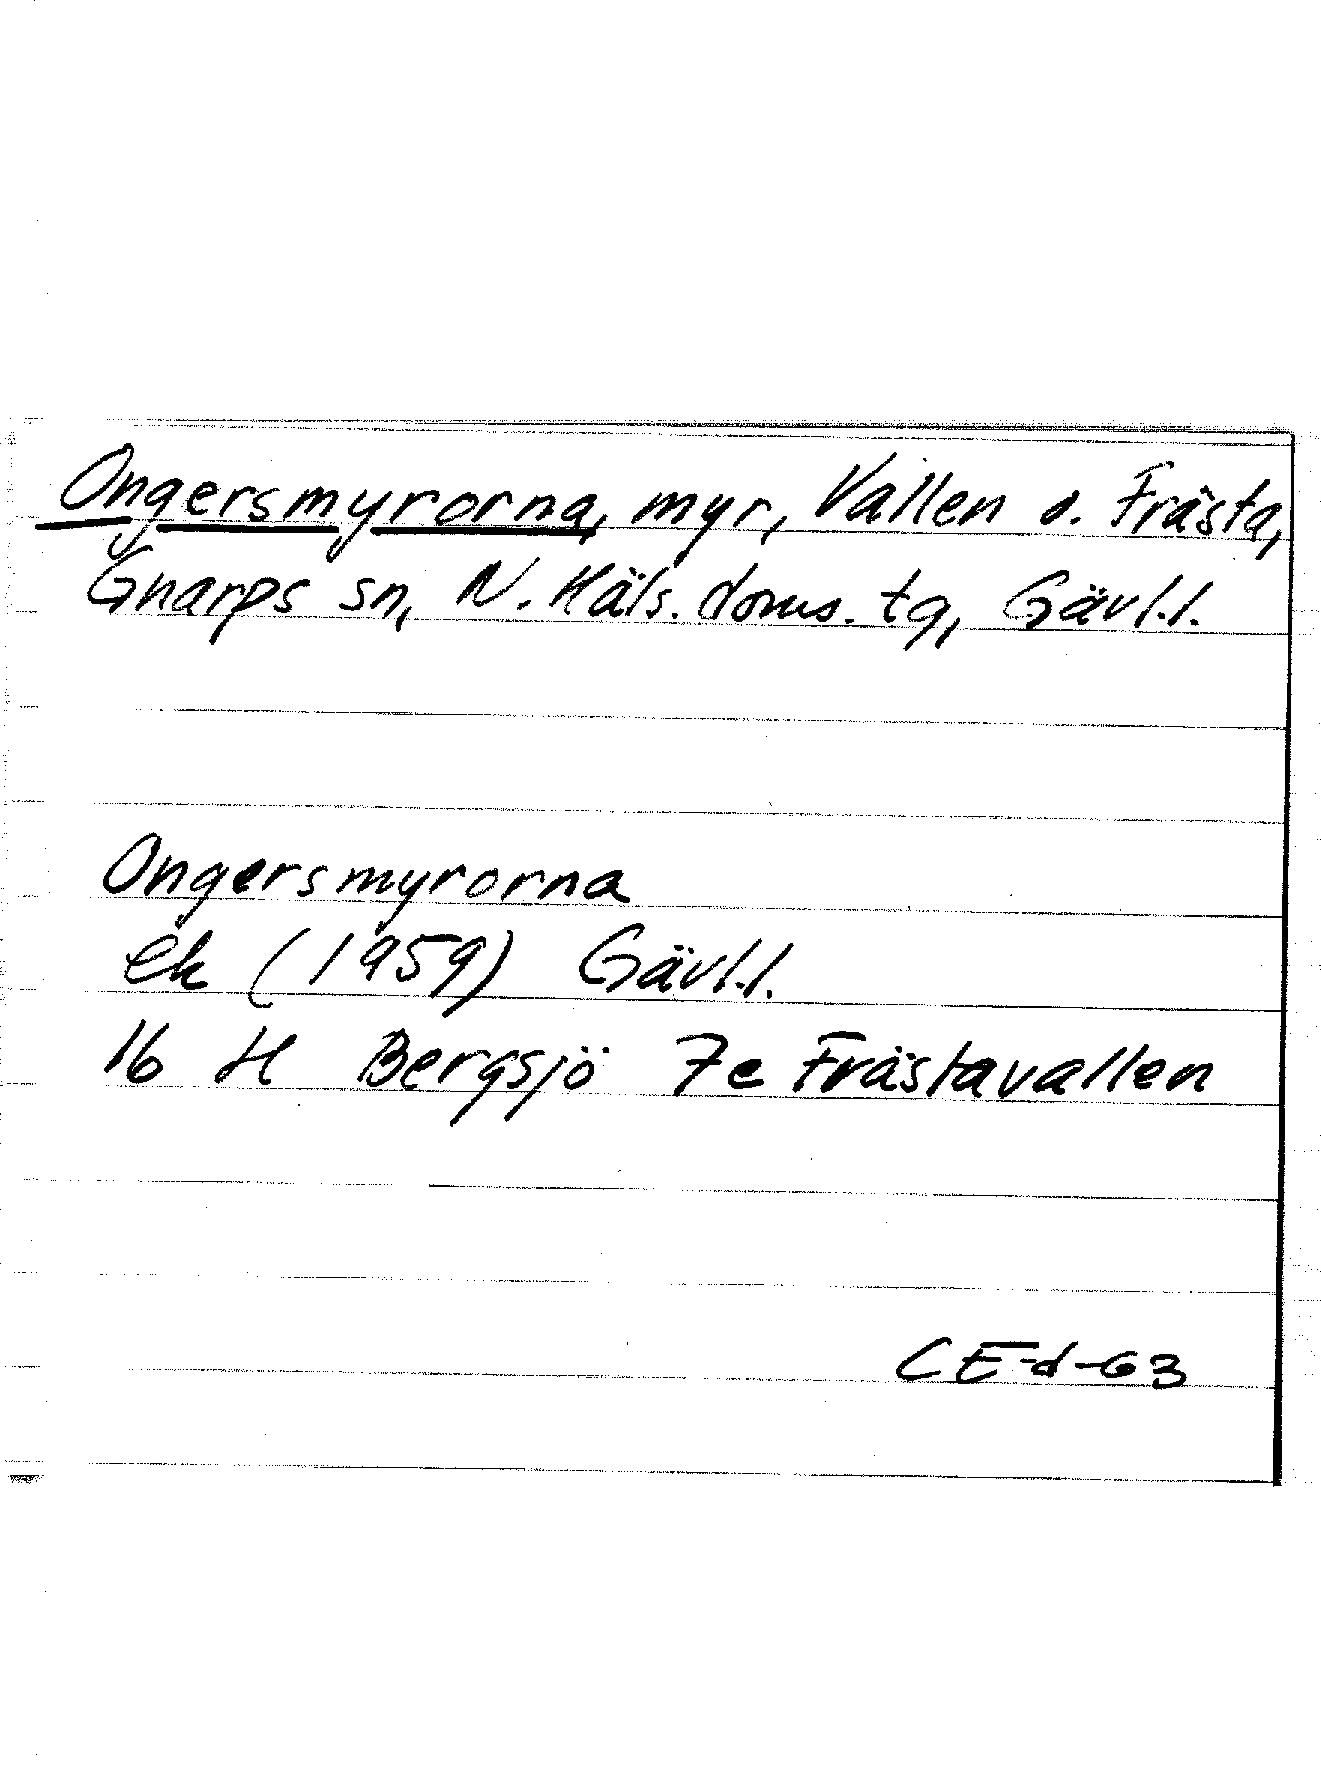 Ongersmyrorna, myr, Vallen o. Frästa,
Gnarps sn, N. Häls. doms. tg, Gävl.l.
Ongersmyrorna
ek (1959) Gävl.l.
16 H Bergsjö 7e Frästavallen
CE-d-63